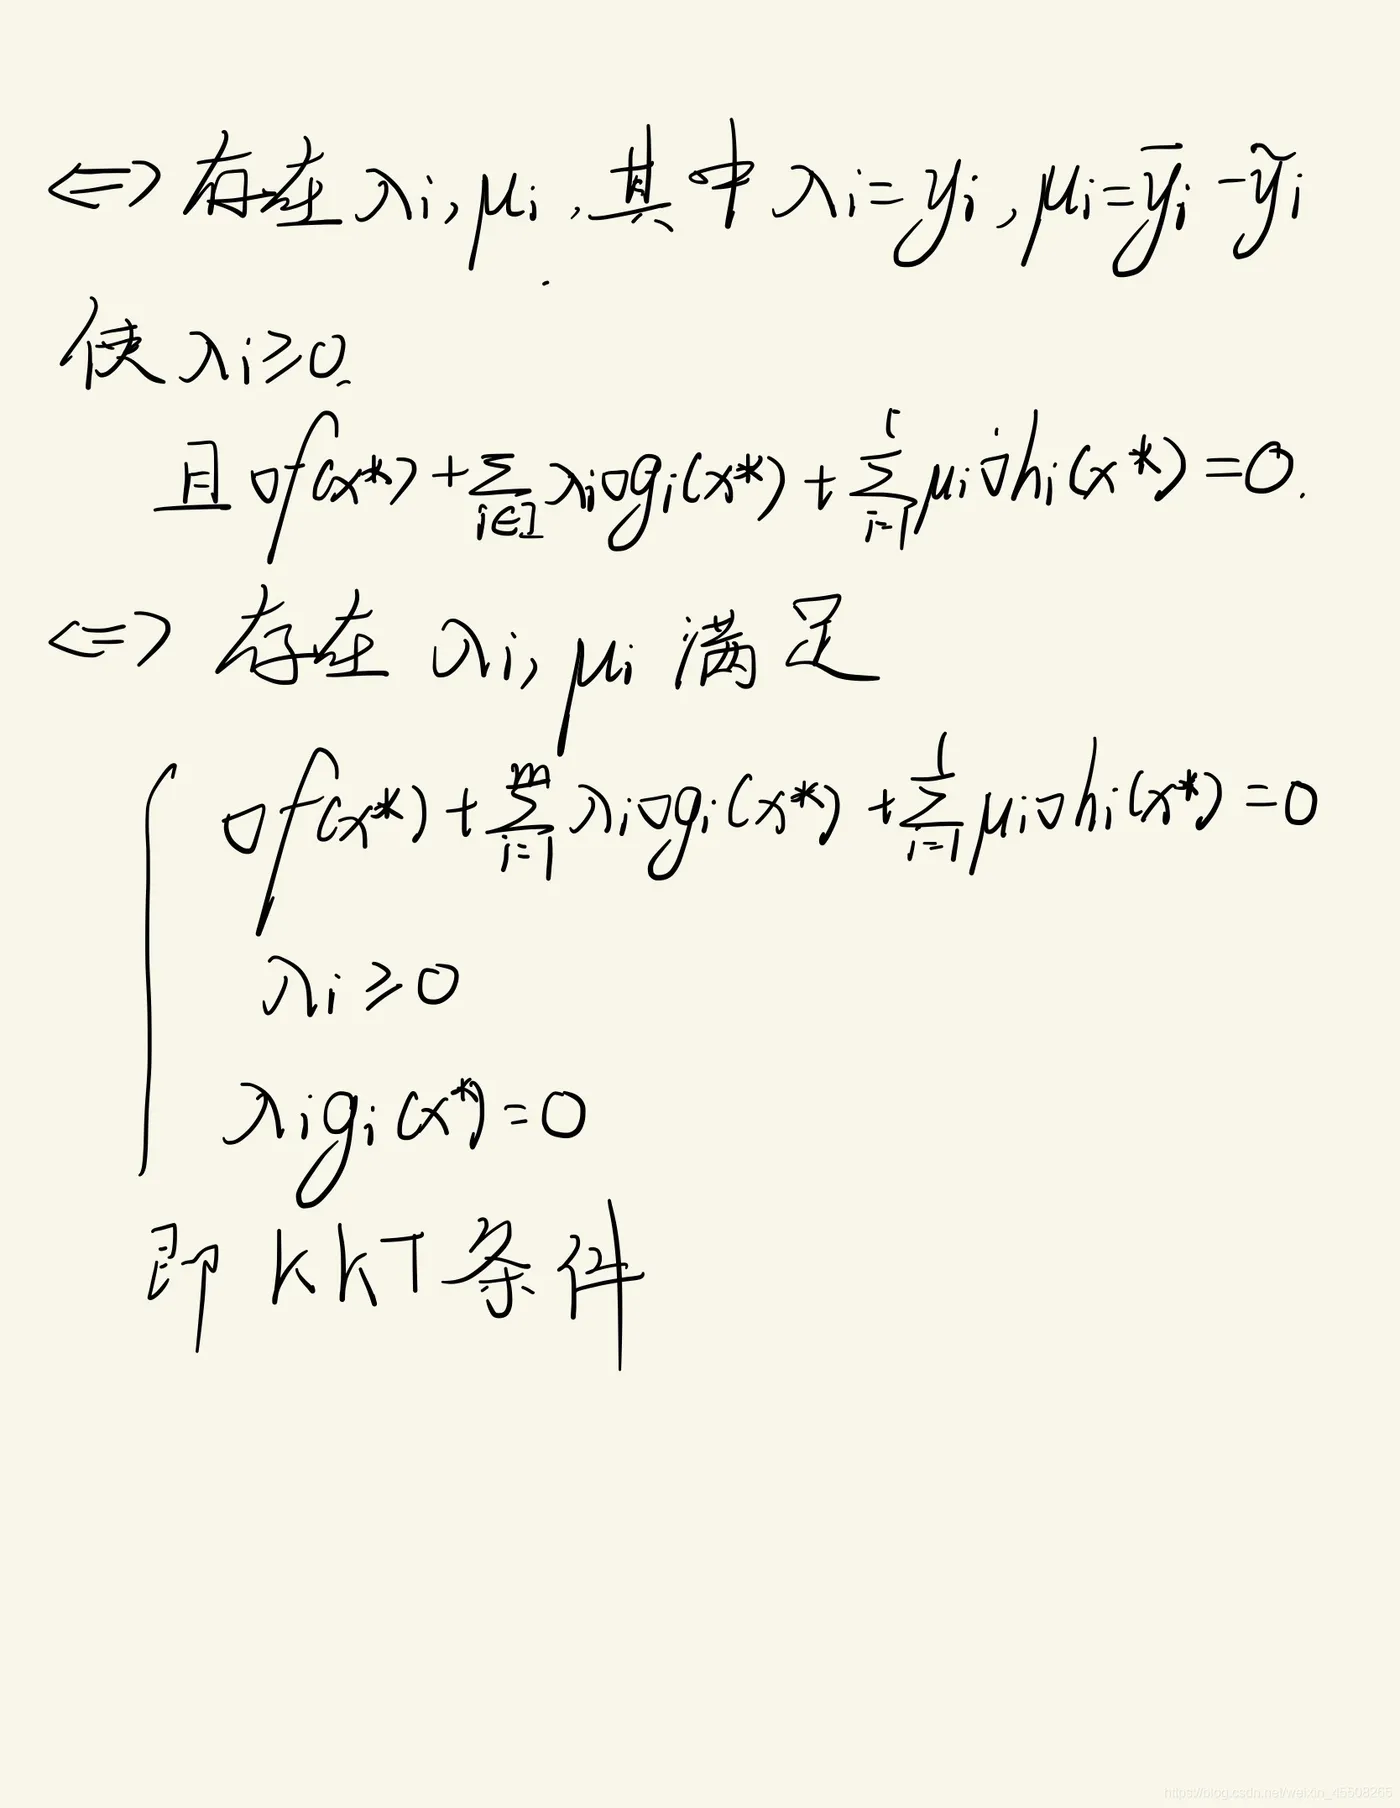 ⟺ 存在 λi, μi, 其中 λi = yi, μi = ȳi - ỹi
使 λi ≥ 0.
且 ∇f(x*) + ∑_{i∈I} λi∇gi(x*) + ∑_{i=1}^{l} μi∇hi(x*) = 0.
⟺ 存在 λi, μi 满足
∇f(x*) + ∑_{i=1}^{m} λi∇gi(x*) + ∑_{i=1}^{l} μi∇hi(x*) = 0
λi ≥ 0
λigi(x*) = 0
即 KKT 条件
https://blog.csdn.net/weixin_45508265